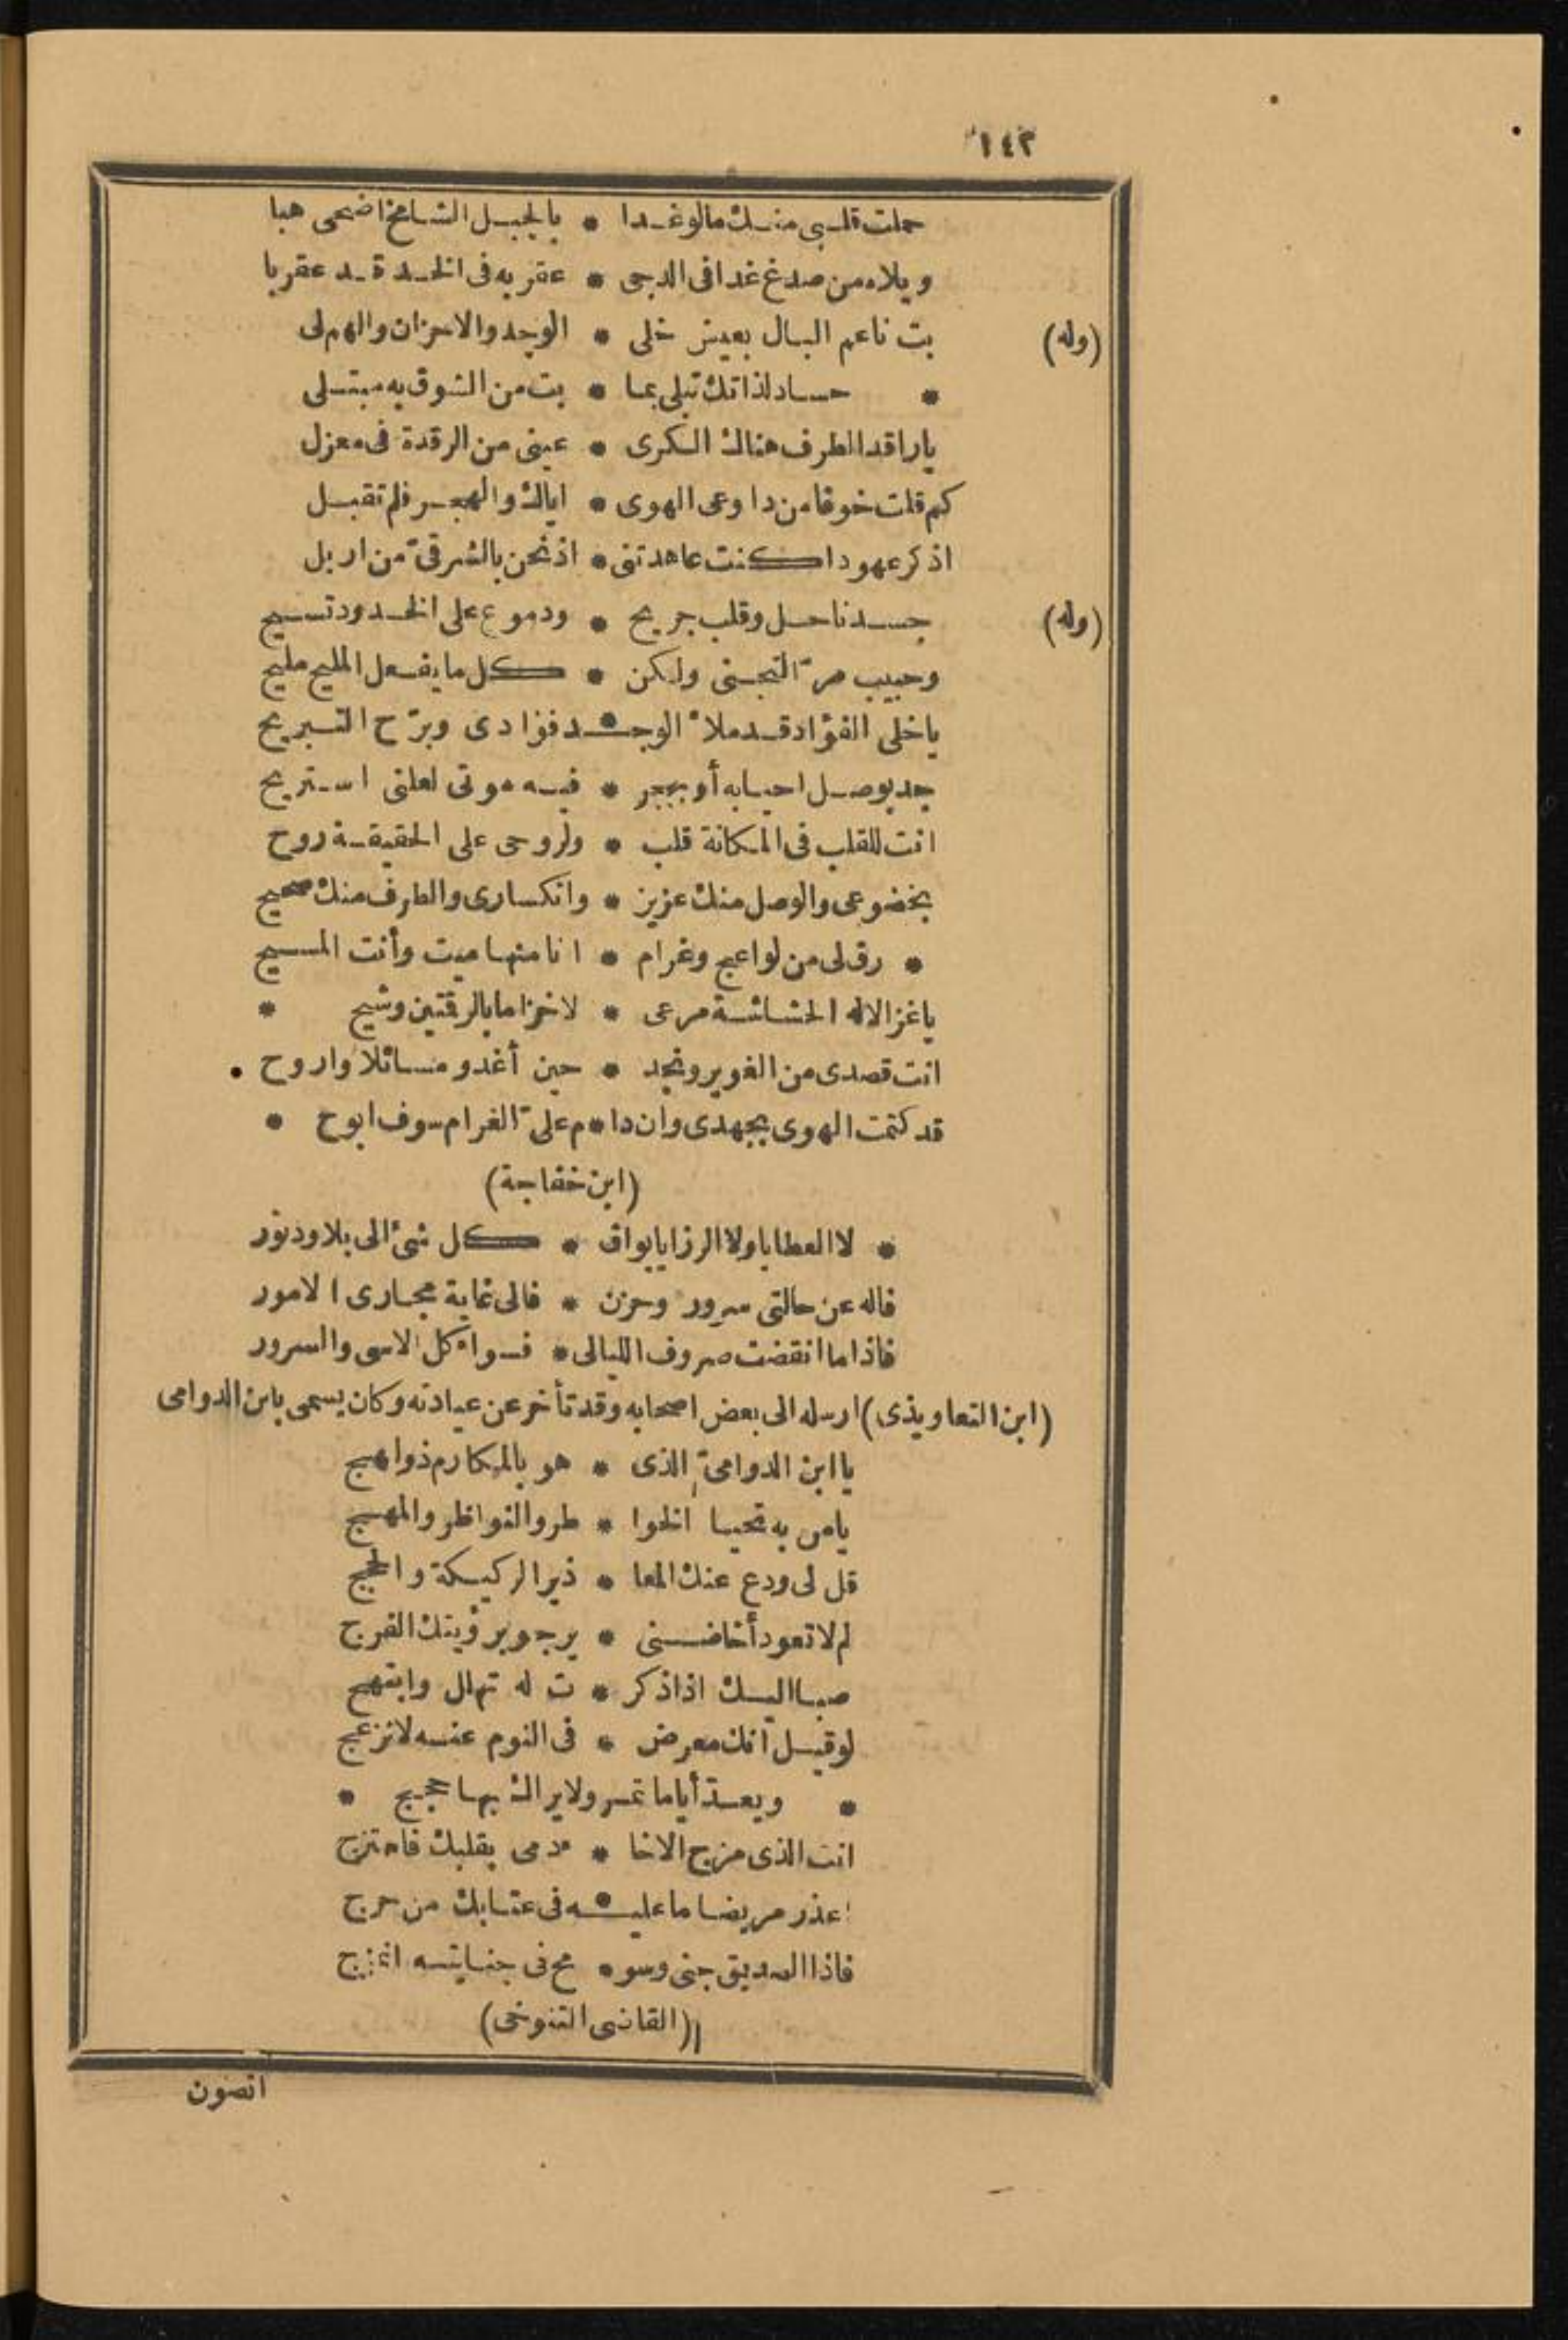 ١٤٢
حملت قلبي منك ما لو غدا * بالجبل الشامخ اضحى هبا
ويلاه من صدغ غدا في الدجى * عقربه في الخد قد عقربا
(وله) بت ناعم البال بعيش خلى * الوجد والاحزان والهم لى
* حساد لذاتك تبلى بما * بت من الشوق به مبتلى
ياراقد الطرف هناك الكرى * عينى من الرقدة فى معزل
كم قلت خوفا من دا وعى الهوى * اياك والهجر فلم تقبل
اذكر عهودا كنت عاهدتنى * اذ نحن بالشرقىّ من اربل
(وله) جسد ناحل وقلب جريح * ودموع على الخدود تسيح
وحبيب مرّ التجنى ولكن * كل ما يفعل المليح مليح
ياخلى الفؤاد قد ملأ الوجـ * ـد فؤادى وبرّح التبريح
جد بوصل احيا به أو بهجر * فيه موتى لعلنى استريح
انت للقلب فى المكانة قلب * ولروحى على الحقيقة روح
بخضوعى والوصل منك عزيز * وانكسارى والطرف منك صحيح
* رق لى من لواعج وغرام * انا منها ميت وأنت المسيح
ياغزالا له الحشاشة مرعى * لا خزاما بالرقتين وشيح *
انت قصدى من الغوير ونجد * حين أغدو مسائلا واروح *
قد كتمت الهوى بجهدى وان دا * م علىّ الغرام سوف ابوح *
(ابن خفاجة)
* لا العطايا ولا الرزايا بواق * كل شئ الى بلا ودثور
فاله عن حالتى سرور وحزن * فالى غاية مجارى الامور
فاذا ما انقضت صروف الليالى * فسواء كل الاسى والسرور
(ابن التعاويذى) ارسله الى بعض اصحابه وقد تأخر عن عيادته وكان يسمى بابن الدوامى
ياابن الدوامىّ الذى * هو بالمكارم ذو لهج
يامن به تحيا الخوا * طر والنواظر والمهج
قل لى ودع عنك المعا * ذير الركيكة والحجج
لم لا تعود أخا ضنى * يرجو برؤيتك الفرج
صبا اليك اذا ذكر * ت له تهلل وابتهج
لو قيل انك معرض * فى النوم عنه لانزعج
* ويعدّ أياما تمر ولا يراك بها حجج *
انت الذى مزج الاخا * ء دمى بقلبك فامتزج
اعذر مريضا ما عليـ * ـه فى عتابك من حرج
فاذا الصديق جنى وسو * مح فى جنايته انمزج
(القاضى التنوخى)
اتصون